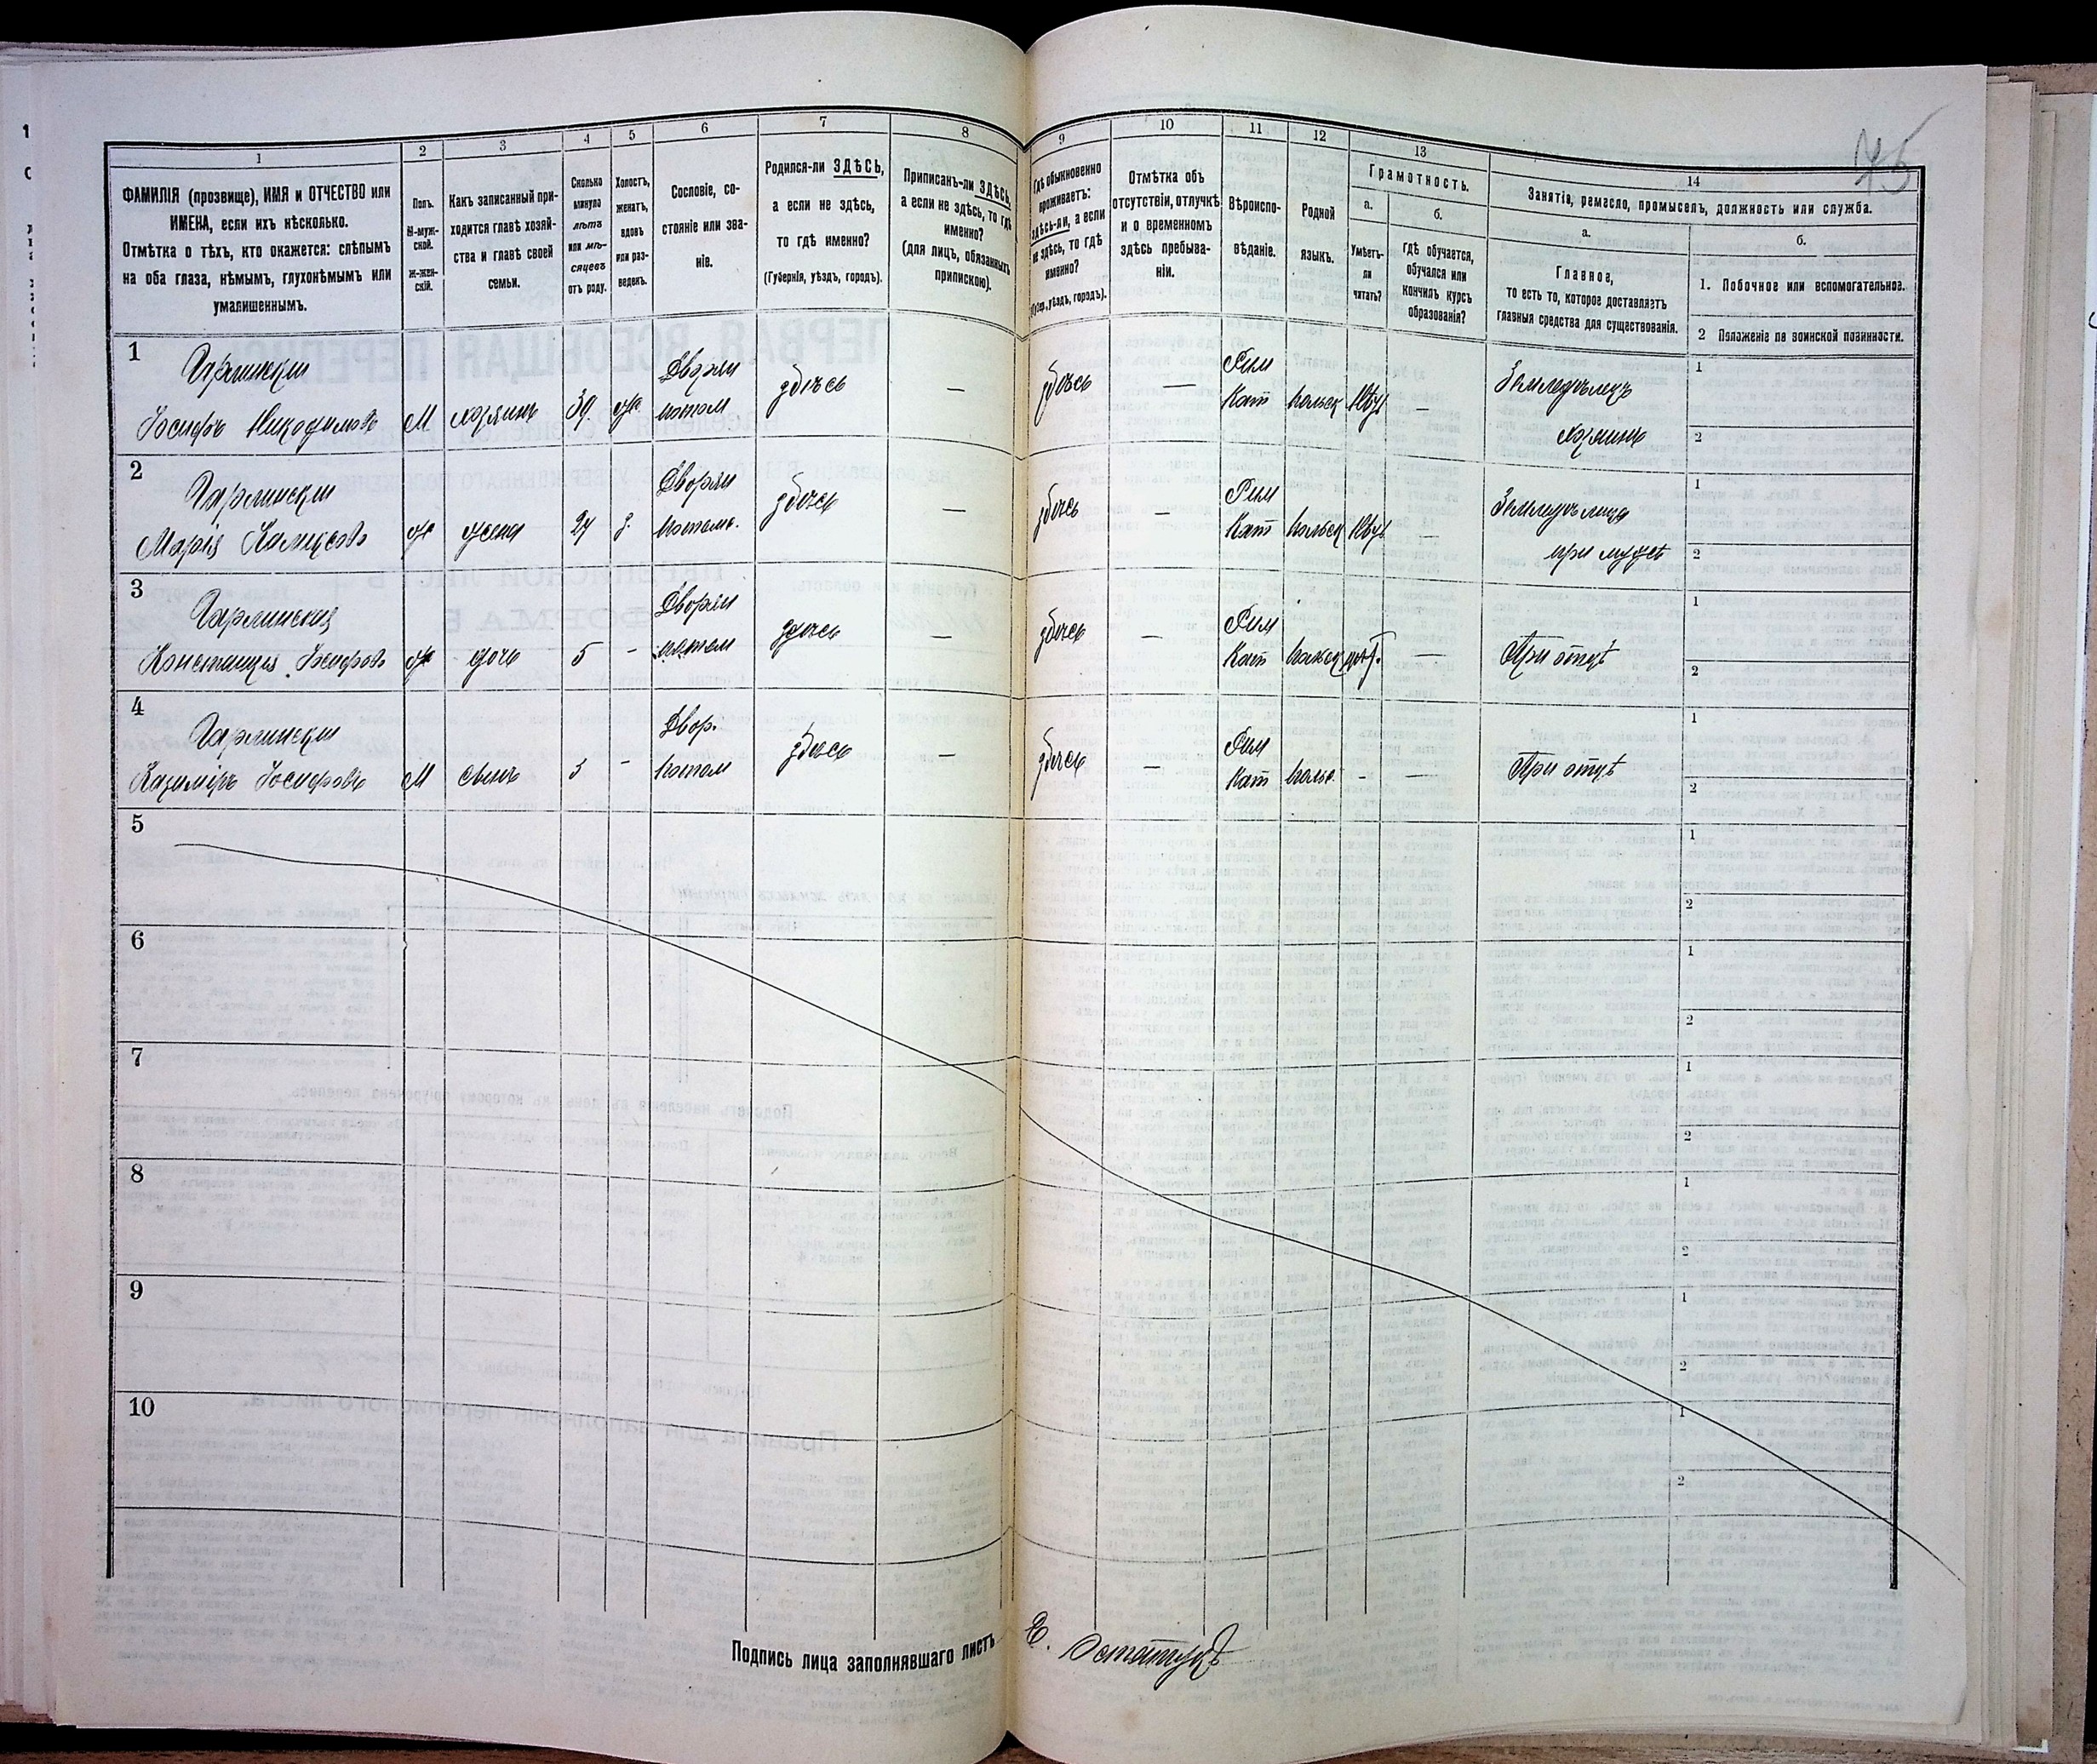 75
1
2
3
4
5
6
7
8
9
10
11
12
13
14
ФАМИЛІЯ (прозвище), ИМЯ и ОТЧЕСТВО или
ИМЕНА, если ихъ нѣсколько.
Отмѣтка о тѣхъ, кто окажется: слѣпымъ
на оба глаза, нѣмымъ, глухонѣмымъ или
умалишеннымъ.
Полъ.
М-муж-
ской.
Ж-жен-
скій.
Какъ записанный при-
ходится главѣ хозяй-
ства и главѣ своей
семьи.
Сколько
минуло
лѣтъ
или мѣ-
сяцевъ
отъ роду.
Холостъ,
женатъ,
вдовъ
или раз-
веденъ.
Сословіе, со-
стояніе или зва-
ніе.
Родился-ли ЗДѢСЬ,
а если не здѣсь,
то гдѣ именно?
(Губернія, уѣздъ, городъ).
Приписанъ-ли ЗДѢСЬ,
а если не здѣсь, то гдѣ
именно?
(для лицъ, обязанныхъ
припискою).
Гдѣ обыкновенно
проживаетъ:
здѣсь-ли, а если
не здѣсь, то гдѣ
именно?
(Губер., уѣздъ, городъ).
Отмѣтка объ
отсутствіи, отлучкѣ
и о временномъ
здѣсь пребыва-
ніи.
Вѣроиспо-
вѣданіе.
Родной
языкъ.
Грамотность.
а.
Умѣетъ-
ли
читать?
б.
Гдѣ обучается,
обучался или
кончилъ курсъ
образованія?
Занятіе, ремесло, промыселъ, должность или служба.
а.
Главное,
то есть то, которое доставляетъ
главныя средства для существованія.
б.
1. Побочное или вспомогательное.
2 Положеніе по воинской повинности.
1
Іосифъ Никодимовъ
М хозяинъ 39
Дворян потом
здѣсь — здѣсь —
Рим Кат польск —
Земледѣлецъ
хозяинъ
1
2
2
Марія
ж жена 27
Дворян потом.
здѣсь — здѣсь —
Рим Кат польск —
при мужѣ
1
2
3
Констанція Іосифова
ж дочь 5 -
Дворян потом
здѣсь — здѣсь —
Рим Кат польск нѣт. —
При отцѣ
1
2
4
Казиміръ Іосифовъ
М сынъ 3 -
Двор. потом
здѣсь — здѣсь —
Рим Кат польс. - —
При отцѣ
1
2
5
1
2
6
1
2
7
1
2
8
1
2
9
1
2
10
1
2
Подпись лица заполнявшаго листъ